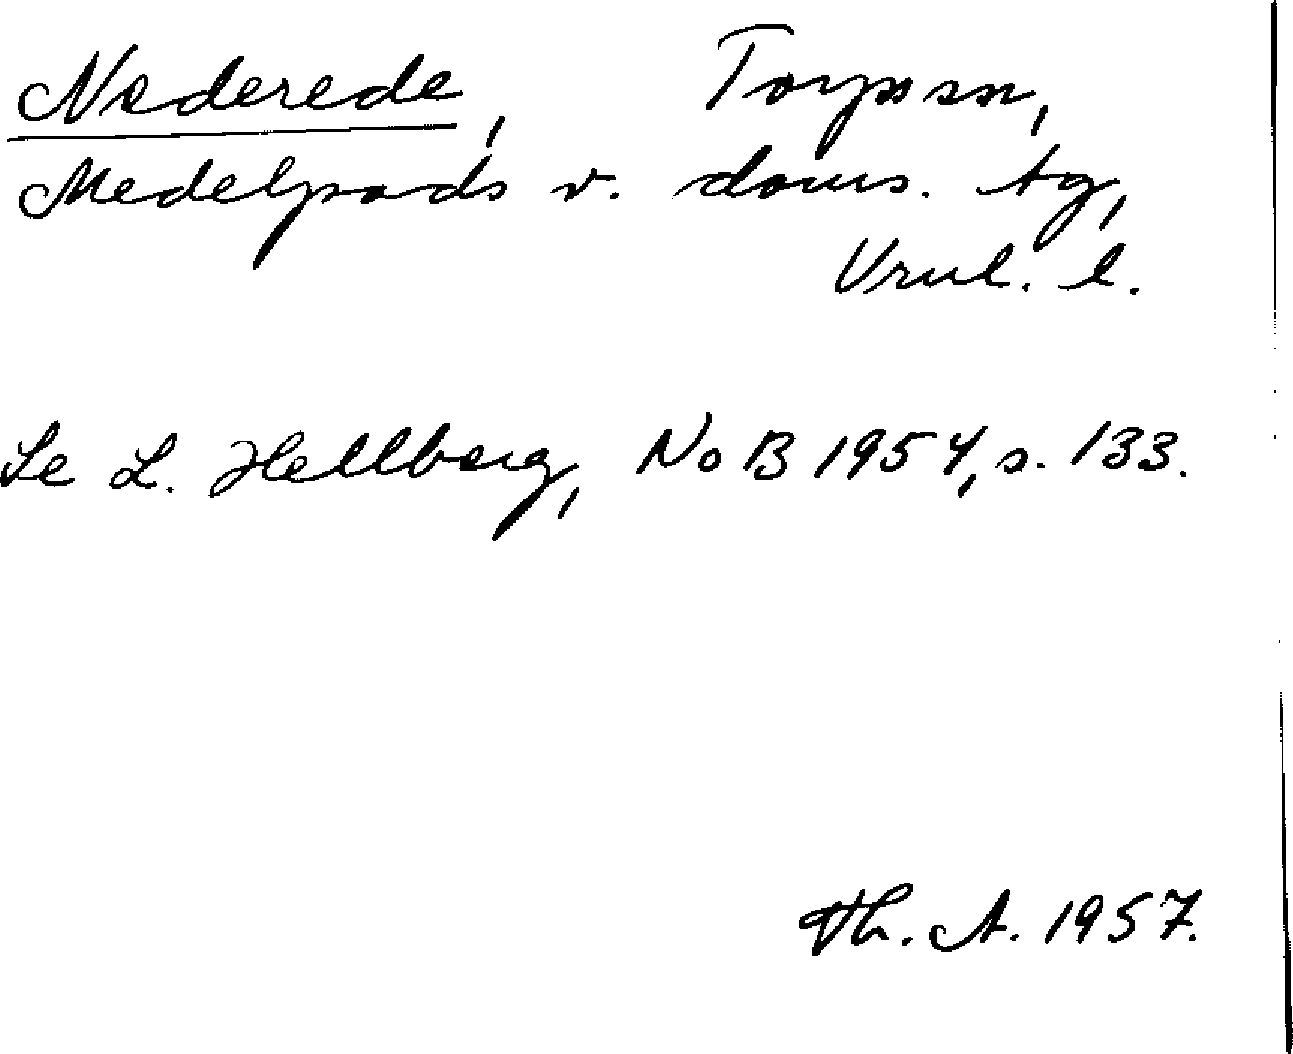 Nederede, Torpssn,
Medelpads v. doms. tg,
Vrnl. l.
Se L. Hellberg, NoB 1954, s. 133.
Th. A. 1957.